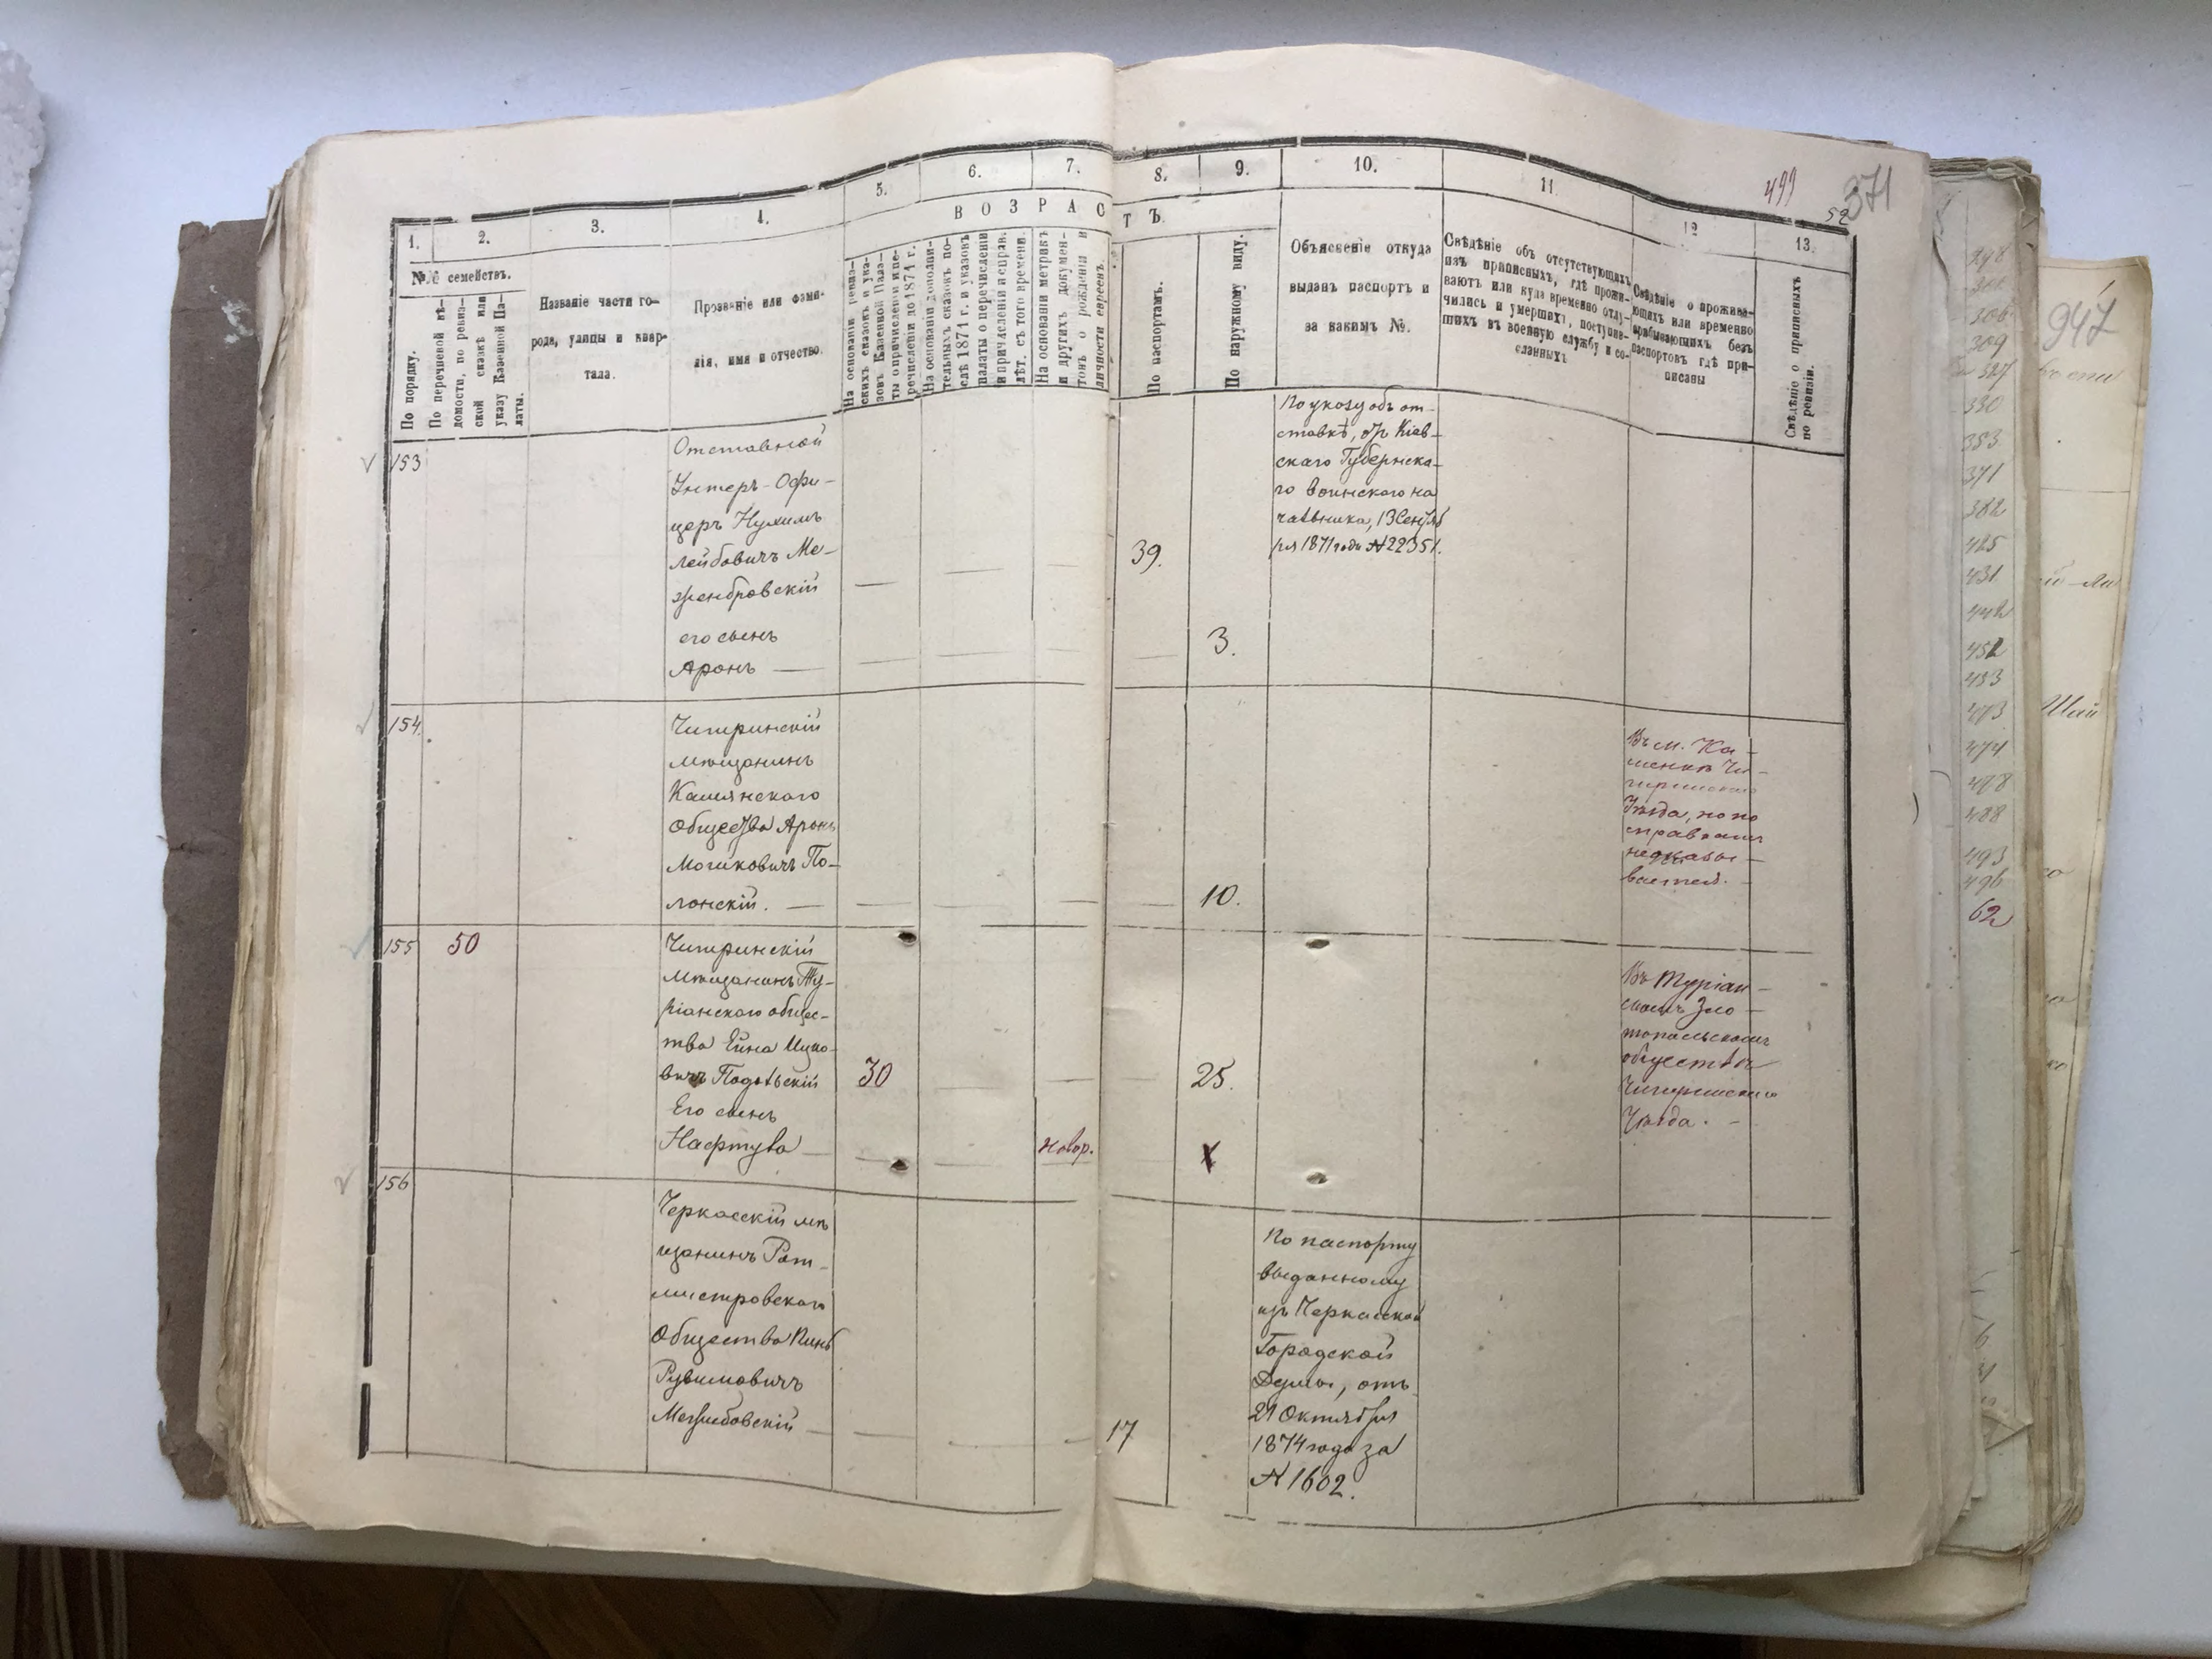 1.
2.
3.
4.
5.
6.
7.
8.
9.
10.
11.
12
13.
499
52
371
ВОЗРАСТЪ.
№№ семействъ.
По порядку.
По перечневой вѣ-
домости, по ревиз-
ской сказкѣ или
указу Казенной Па-
латы.
Названіе части го-
рода, улицы и квар-
тала.
Прозваніе или фами-
лія, имя и отчество.
На основаніи ревиз-
скихъ сказокъ и ука-
зовъ Казенной Пала-
ты о причисленіи и пе-
речисленіи до 1871 г.
На основаніи дополни-
тельныхъ сказокъ по-
слѣ 1871 г. и указовъ
палаты о перечисленіи
и причисленіи и справ.
лѣт. съ того времени.
На основаніи метрикъ
и другихъ докумен-
товъ о рожденіи и
личности евреевъ.
По паспортамъ.
По наружному виду.
Объясненіе откуда
выданъ паспортъ и
за какимъ №.
Свѣдѣніе объ отсутствующихъ
изъ приписныхъ, гдѣ прожи-
ваютъ или куда временно отлу-
чились и умершихъ, поступив-
шихъ въ военную службу и со-
сланныхъ
Свѣдѣніе о прожива-
ющихъ или временно
прибывающихъ безъ
паспортовъ гдѣ при-
писаны
Свѣдѣніе о приписныхъ
по ревизіи.
153
Отставной
Унтеръ-Офи-
церъ Нухимъ
Лейбовичъ Ме-
жембровскій
39.
По указу объ от-
ставкѣ, отъ Кіев-
скаго Губернска-
го воинскаго на
чальника, 13 Сентяб
ря 1871 года № 22351.
его сынъ
Аронъ
3.
154.
Чигринскій
мѣщанинъ
Камянского
Общества Аронъ
Мошковичъ По-
лонскій.
10.
Въ м. Ка-
менкѣ Чи-
гиринскаго
Уѣзда, но по
справкамъ
неоказы-
вается.
155
50
Чигринскій
мѣщанинъ Ту-
ріанского общес-
тва Ейна Ицко-
вичъ Подольскій
30
25.
Въ Туріан-
скомъ Зло-
топольскомъ
обществѣ
Чигиринскаго
Уѣзда.
Его сынъ
Нафтула
новор.
X
156
Черкасскій мѣ
щанинъ Рот-
мистровского
Общества Пинь
Рувимовичъ
Межибовскій
17
По паспорту
выданному
изъ Черкасской
Городской
Думы, отъ
21 Октября
1874 года за
№ 1602.
947
298
309
327
330
353
371
382
425
431
442
452
453
473
474
478
488
493
496
62
Шай